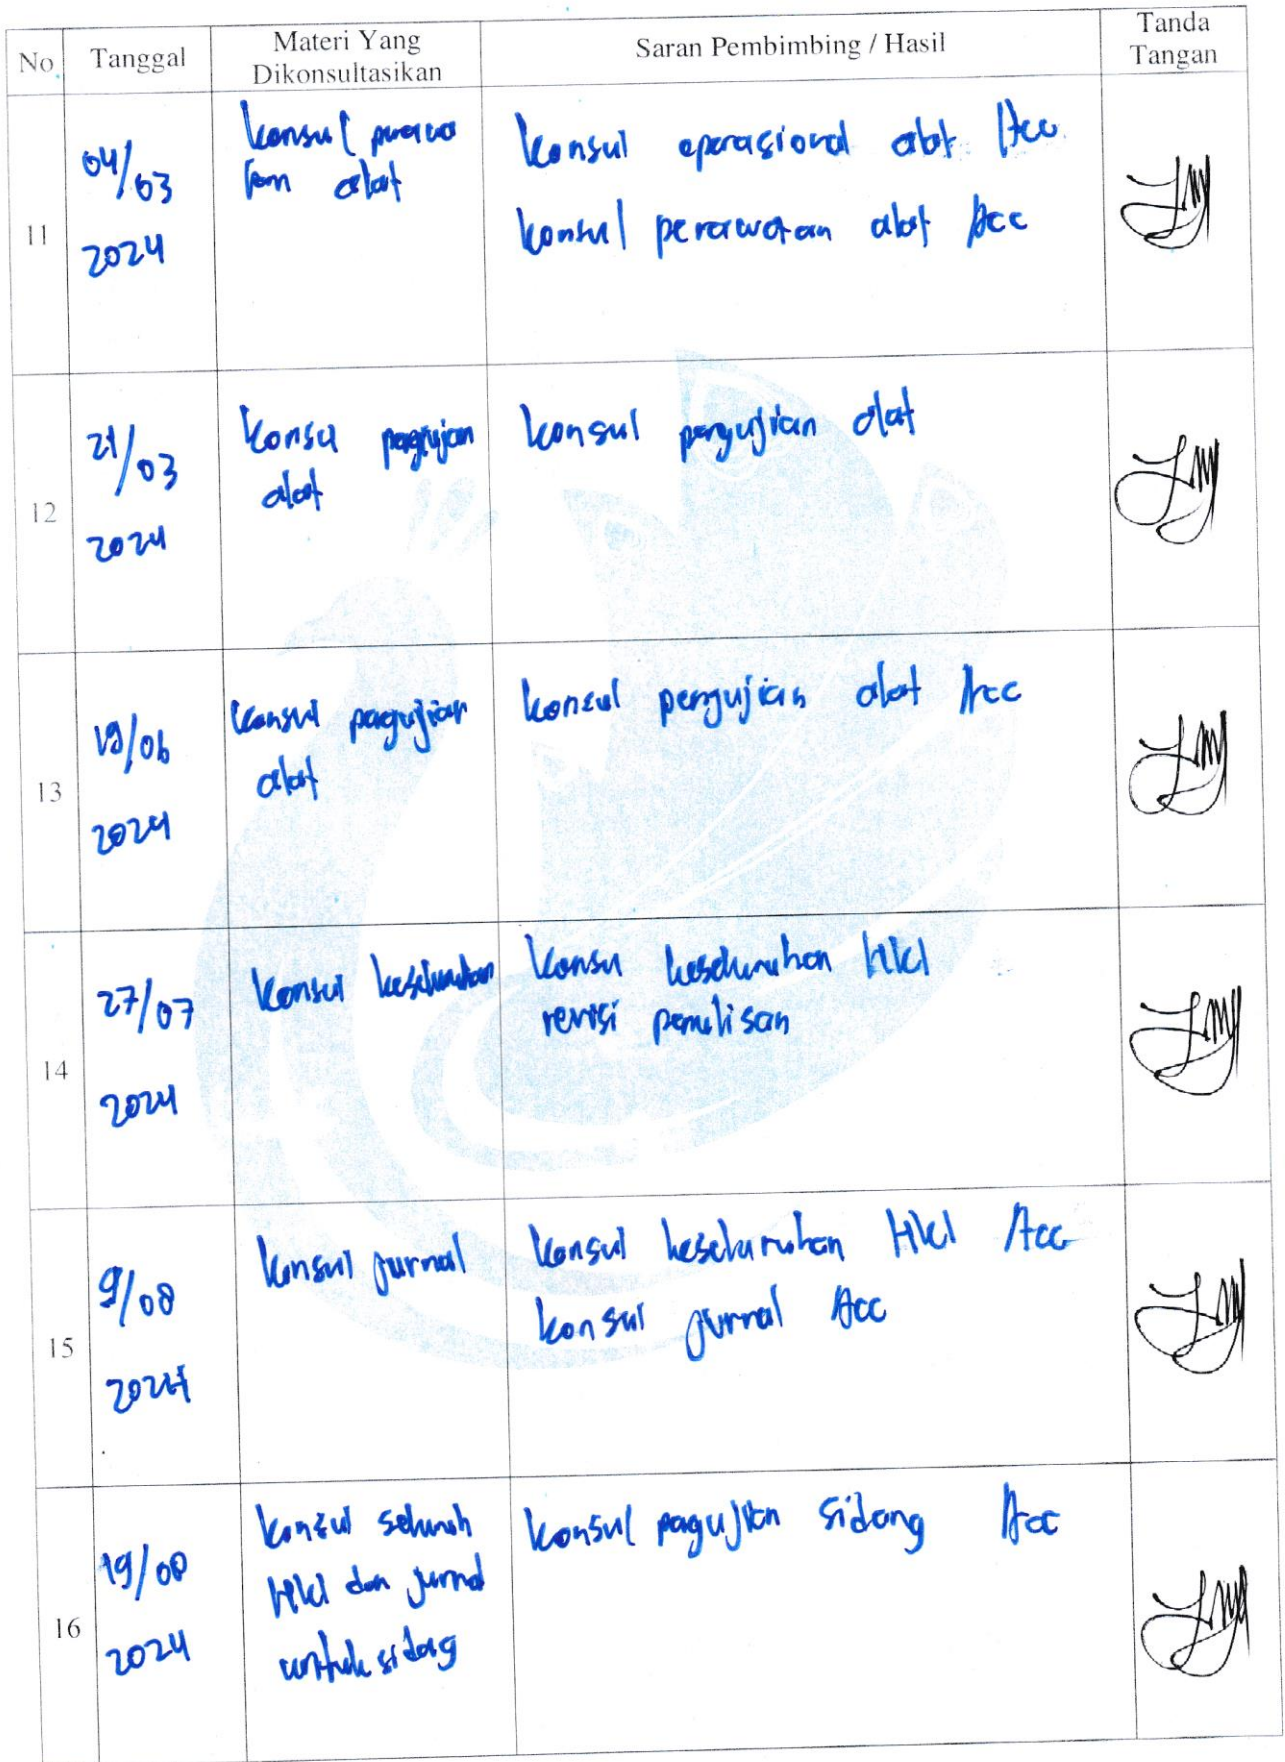 No Tanggal Materi Yang Dikonsultasikan Saran Pembimbing / Hasil Tanda Tangan
11
04/03
2024
konsul perawa
tan alat
konsul operasional alat Acc
konsul perawatan alat Acc
12
21/03
2024
konsul pagujian
alat
konsul pengujian alat
13
19/06
2024
konsul pagujian
alat
konsul pengujian alat Acc
14
27/07
2024
konsul keseluruhan
konsul keseluruhan HKI
revisi penulisan
15
9/08
2024
konsul jurnal
konsul keseluruhan HKI Acc
konsul jurnal Acc
16
19/08
2024
konsul seluruh
HKI dan jurnal
untuk sidang
konsul pagujian sidang Acc